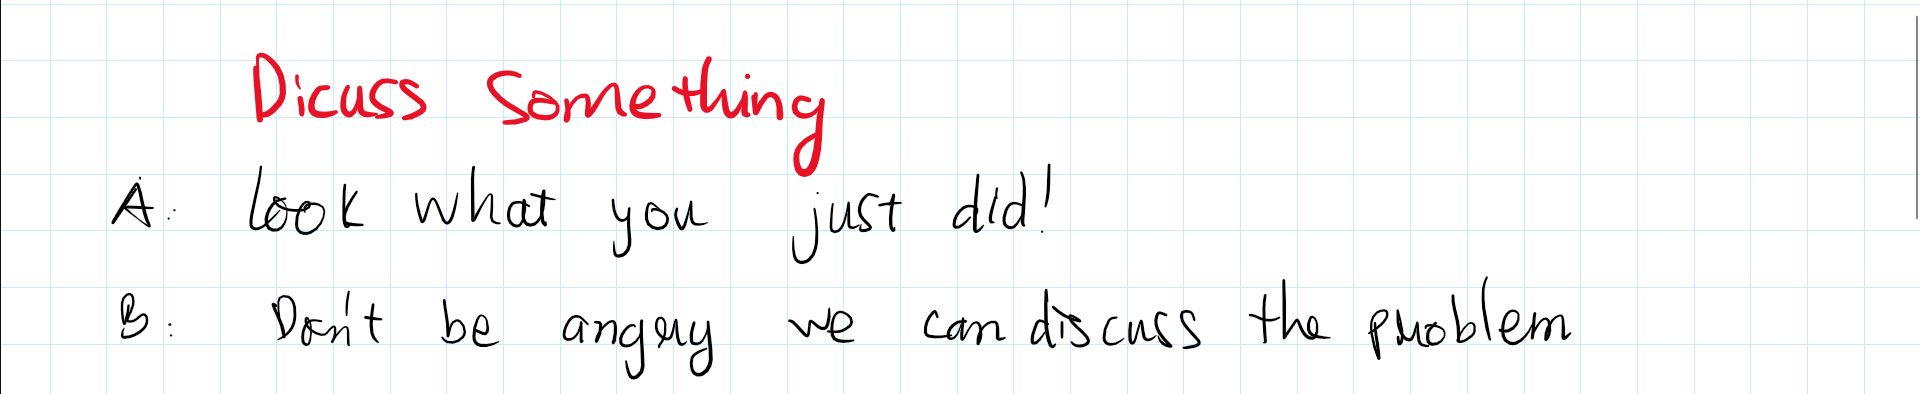 Dicuss Something
A: look what you just did!
B: Don't be angry we can discuss the problem